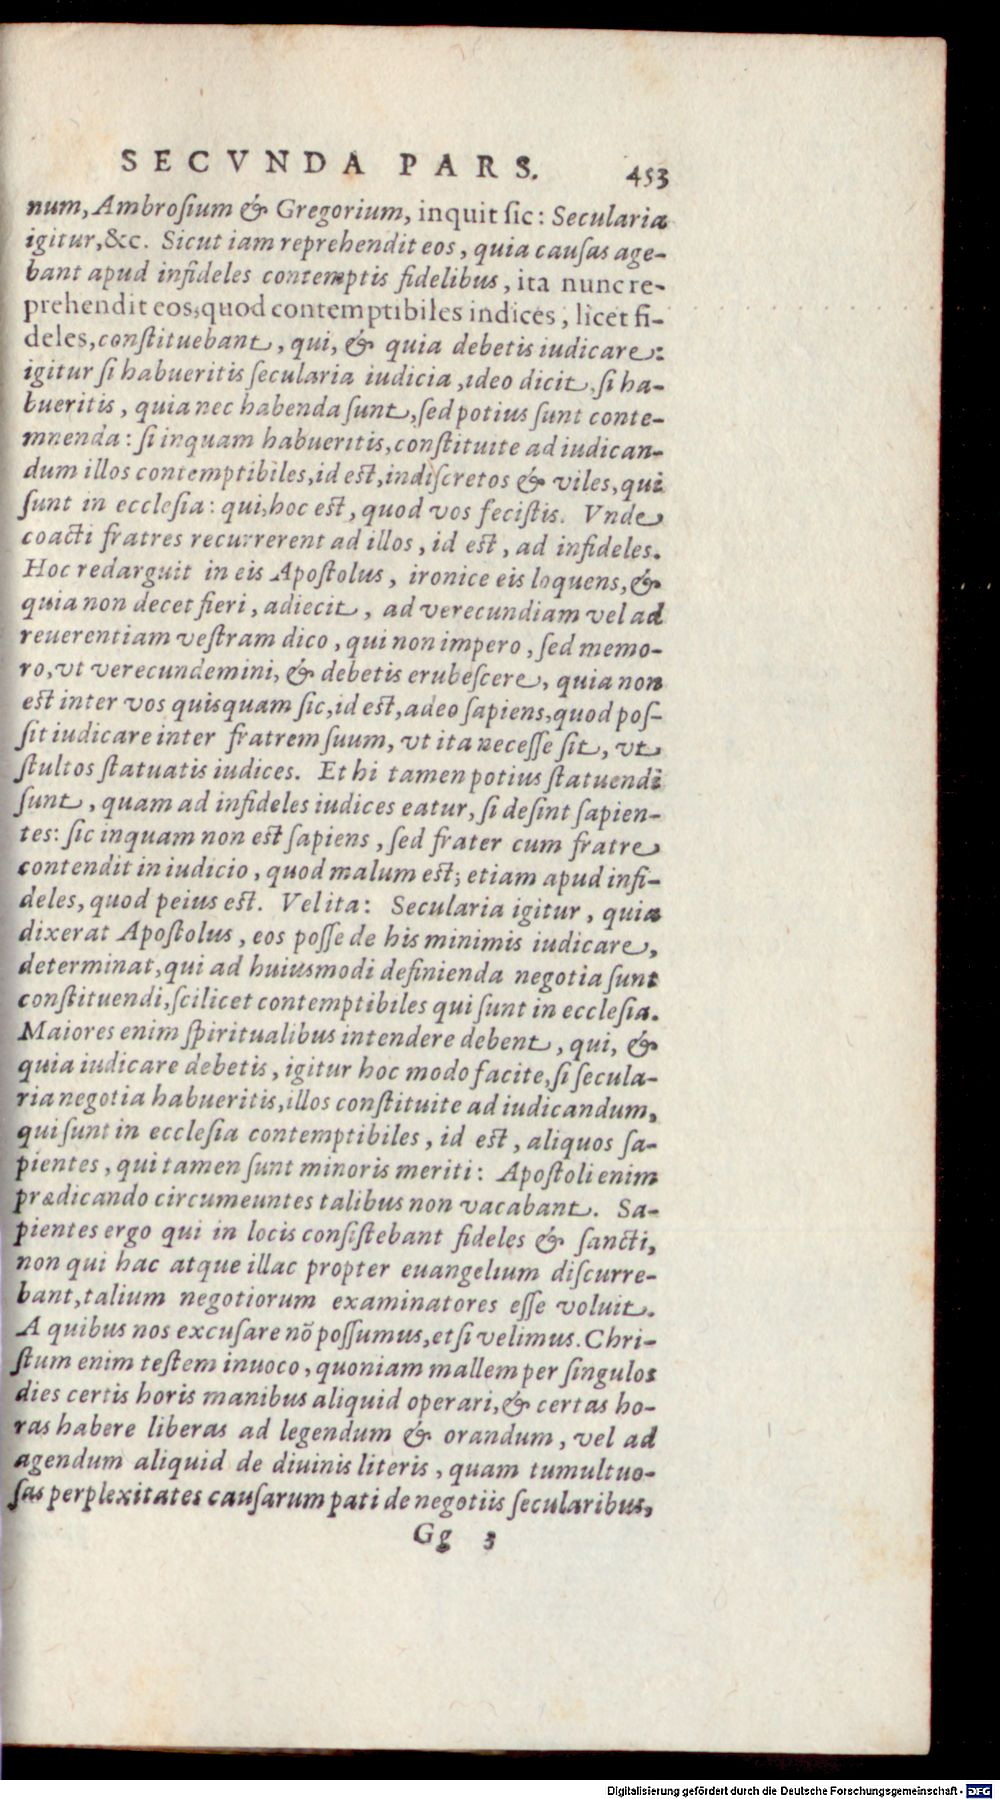 SECVNDA PARS. 453
num, Ambroſium & Gregorium, inquit ſic: Secularia
igitur, &c. Sicut iam reprehendit eos, quia cauſas age-
bant apud infideles contemptis fidelibus, ita nunc re-
prehendit eos, quod contemptibiles indices, licet fi-
deles, conſtituebant, qui, & quia debetis iudicare:
igitur ſi habueritis ſecularia iudicia, ideo dicit, ſi ha-
bueritis, quia nec habenda ſunt, ſed potius ſunt conte-
mnenda: ſi inquam habueritis, conſtituite ad iudican-
dum illos contemptibiles, id eſt, indiſcretos & viles, qui
ſunt in eccleſia: qui, hoc eſt, quod vos feciſtis. Vnde
coacti fratres recurrerent ad illos, id eſt, ad infideles.
Hoc redarguit in eis Apoſtolus, ironice eis loquens, &
quia non decet fieri, adiecit, ad verecundiam vel ad
reuerentiam veſtram dico, qui non impero, ſed memo-
ro, vt verecundemini, & debetis erubeſcere, quia non
eſt inter vos quisquam ſic, id eſt, adeo ſapiens, quod poſ-
ſit iudicare inter fratrem ſuum, vt ita neceſſe ſit, vt
ſtultos ſtatuatis iudices. Et hi tamen potius ſtatuendi
ſunt, quam ad infideles iudices eatur, ſi deſint ſapien-
tes: ſic inquam non eſt ſapiens, ſed frater cum fratre
contendit in iudicio, quod malum eſt; etiam apud infi-
deles, quod peius eſt. Vel ita: Secularia igitur, quia
dixerat Apoſtolus, eos poſſe de his minimis iudicare,
determinat, qui ad huiusmodi definienda negotia ſunt
conſtituendi, ſcilicet contemptibiles qui ſunt in eccleſia.
Maiores enim ſpiritualibus intendere debent, qui, &
quia iudicare debetis, igitur hoc modo facite, ſi ſecula-
ria negotia habueritis, illos conſtituite ad iudicandum,
qui ſunt in eccleſia contemptibiles, id eſt, aliquos ſa-
pientes, qui tamen ſunt minoris meriti: Apoſtoli enim
prædicando circumeuntes talibus non vacabant. Sa-
pientes ergo qui in locis conſiſtebant fideles & ſancti,
non qui hac atque illac propter euangelium diſcurre-
bant, talium negotiorum examinatores eſſe voluit.
A quibus nos excuſare nõ poſſumus, et ſi velimus. Chri-
ſtum enim teſtem inuoco, quoniam mallem per ſingulos
dies certis horis manibus aliquid operari, & certas ho-
ras habere liberas ad legendum & orandum, vel ad
agendum aliquid de diuinis literis, quam tumultuo-
ſas perplexitates cauſarum pati de negotiis ſecularibus,
Gg 3
Digitalisierung gefördert durch die Deutsche Forschungsgemeinschaft - DFG